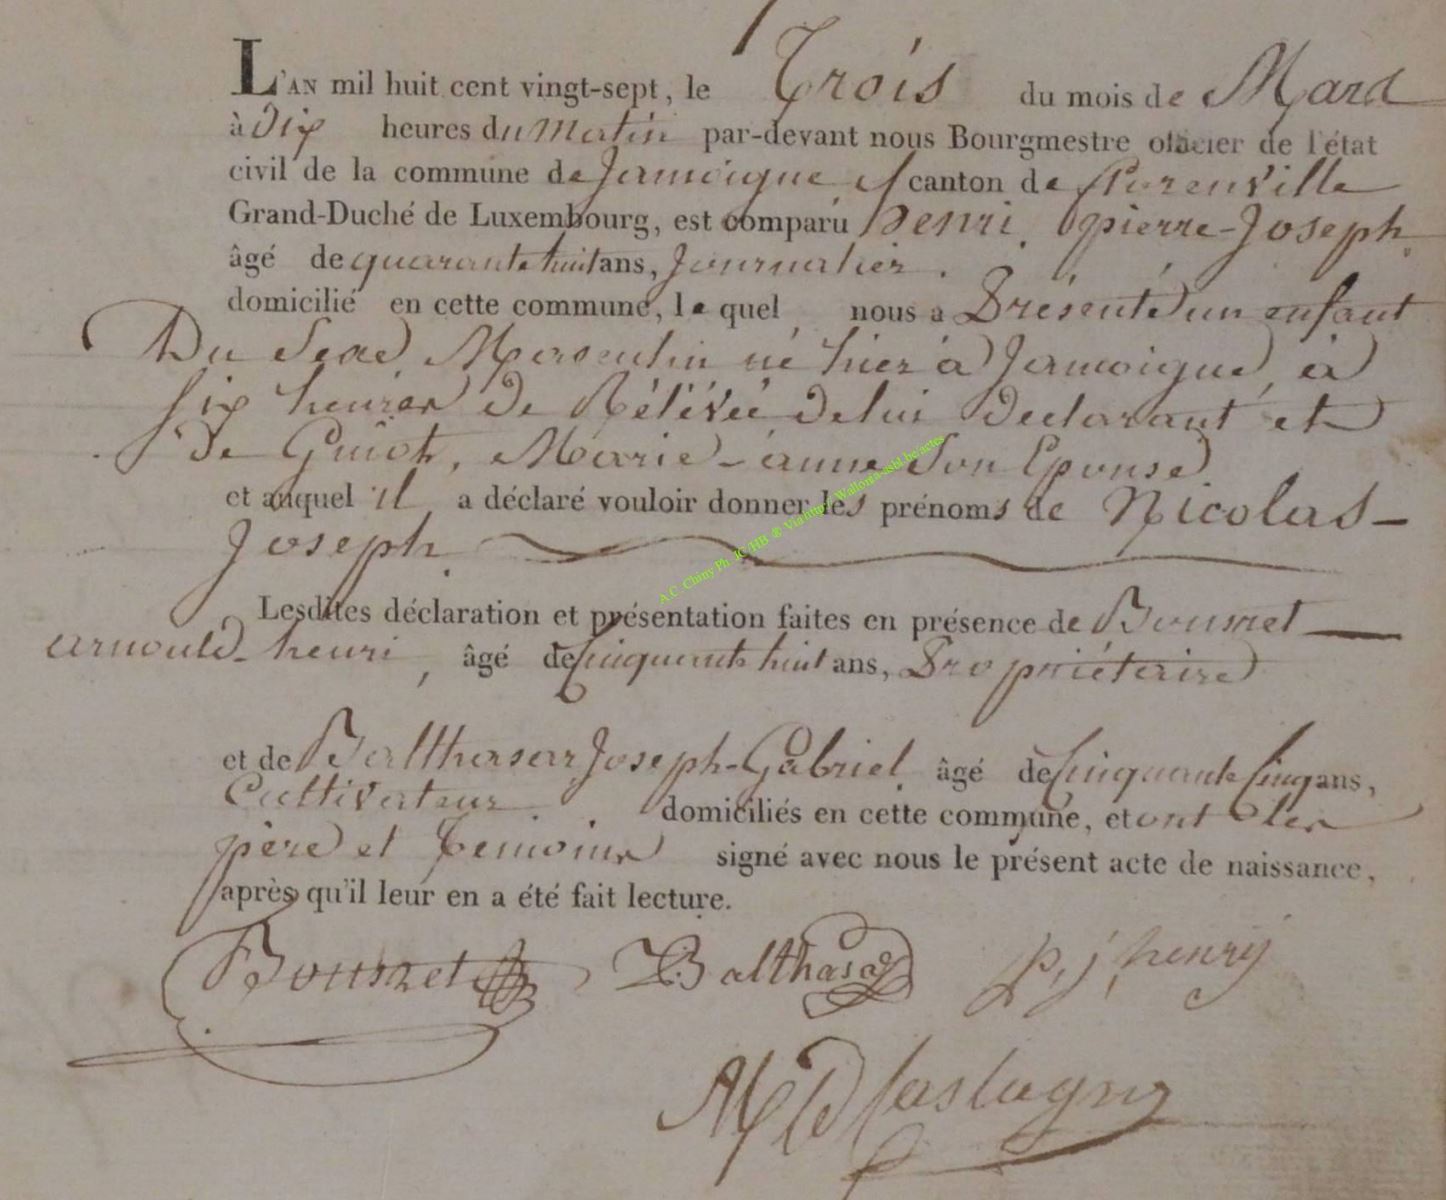 L'AN mil huit cent vingt-sept, le Trois du mois de Mars
à Dix heures du matin par-devant nous Bourgmestre officier de l'état
civil de la commune de Jamoigne canton de florenville
Grand-Duché de Luxembourg, est comparu henri, pierre-Joseph
âgé de quarante huit ans, Journalier.
domicilié en cette commune, le quel nous a Présenté un enfant
Du Sexe Masculin né hier à Jamoigne, à
six heures de Rélévée de lui Declarant et
De Guiot, Marie-anne Son Epouse
et auquel il a déclaré vouloir donner les prénoms de Nicolas-
Joseph.
Lesdites déclaration et présentation faites en présence de Bousret
arnould-henri, âgé de Cinquante huit ans, Propriétaire
et de Balthasar Joseph-Gabriel âgé de Cinquante Cinq ans,
Cultivateur. domiciliés en cette commune, et ont les
père et Temoins signé avec nous le présent acte de naissance,
après qu'il leur en a été fait lecture.
Bousret Balthasar p, j, henry
A.C. Chiny Ph. JC/HB ® Via Wallonia-asbl.be/actes